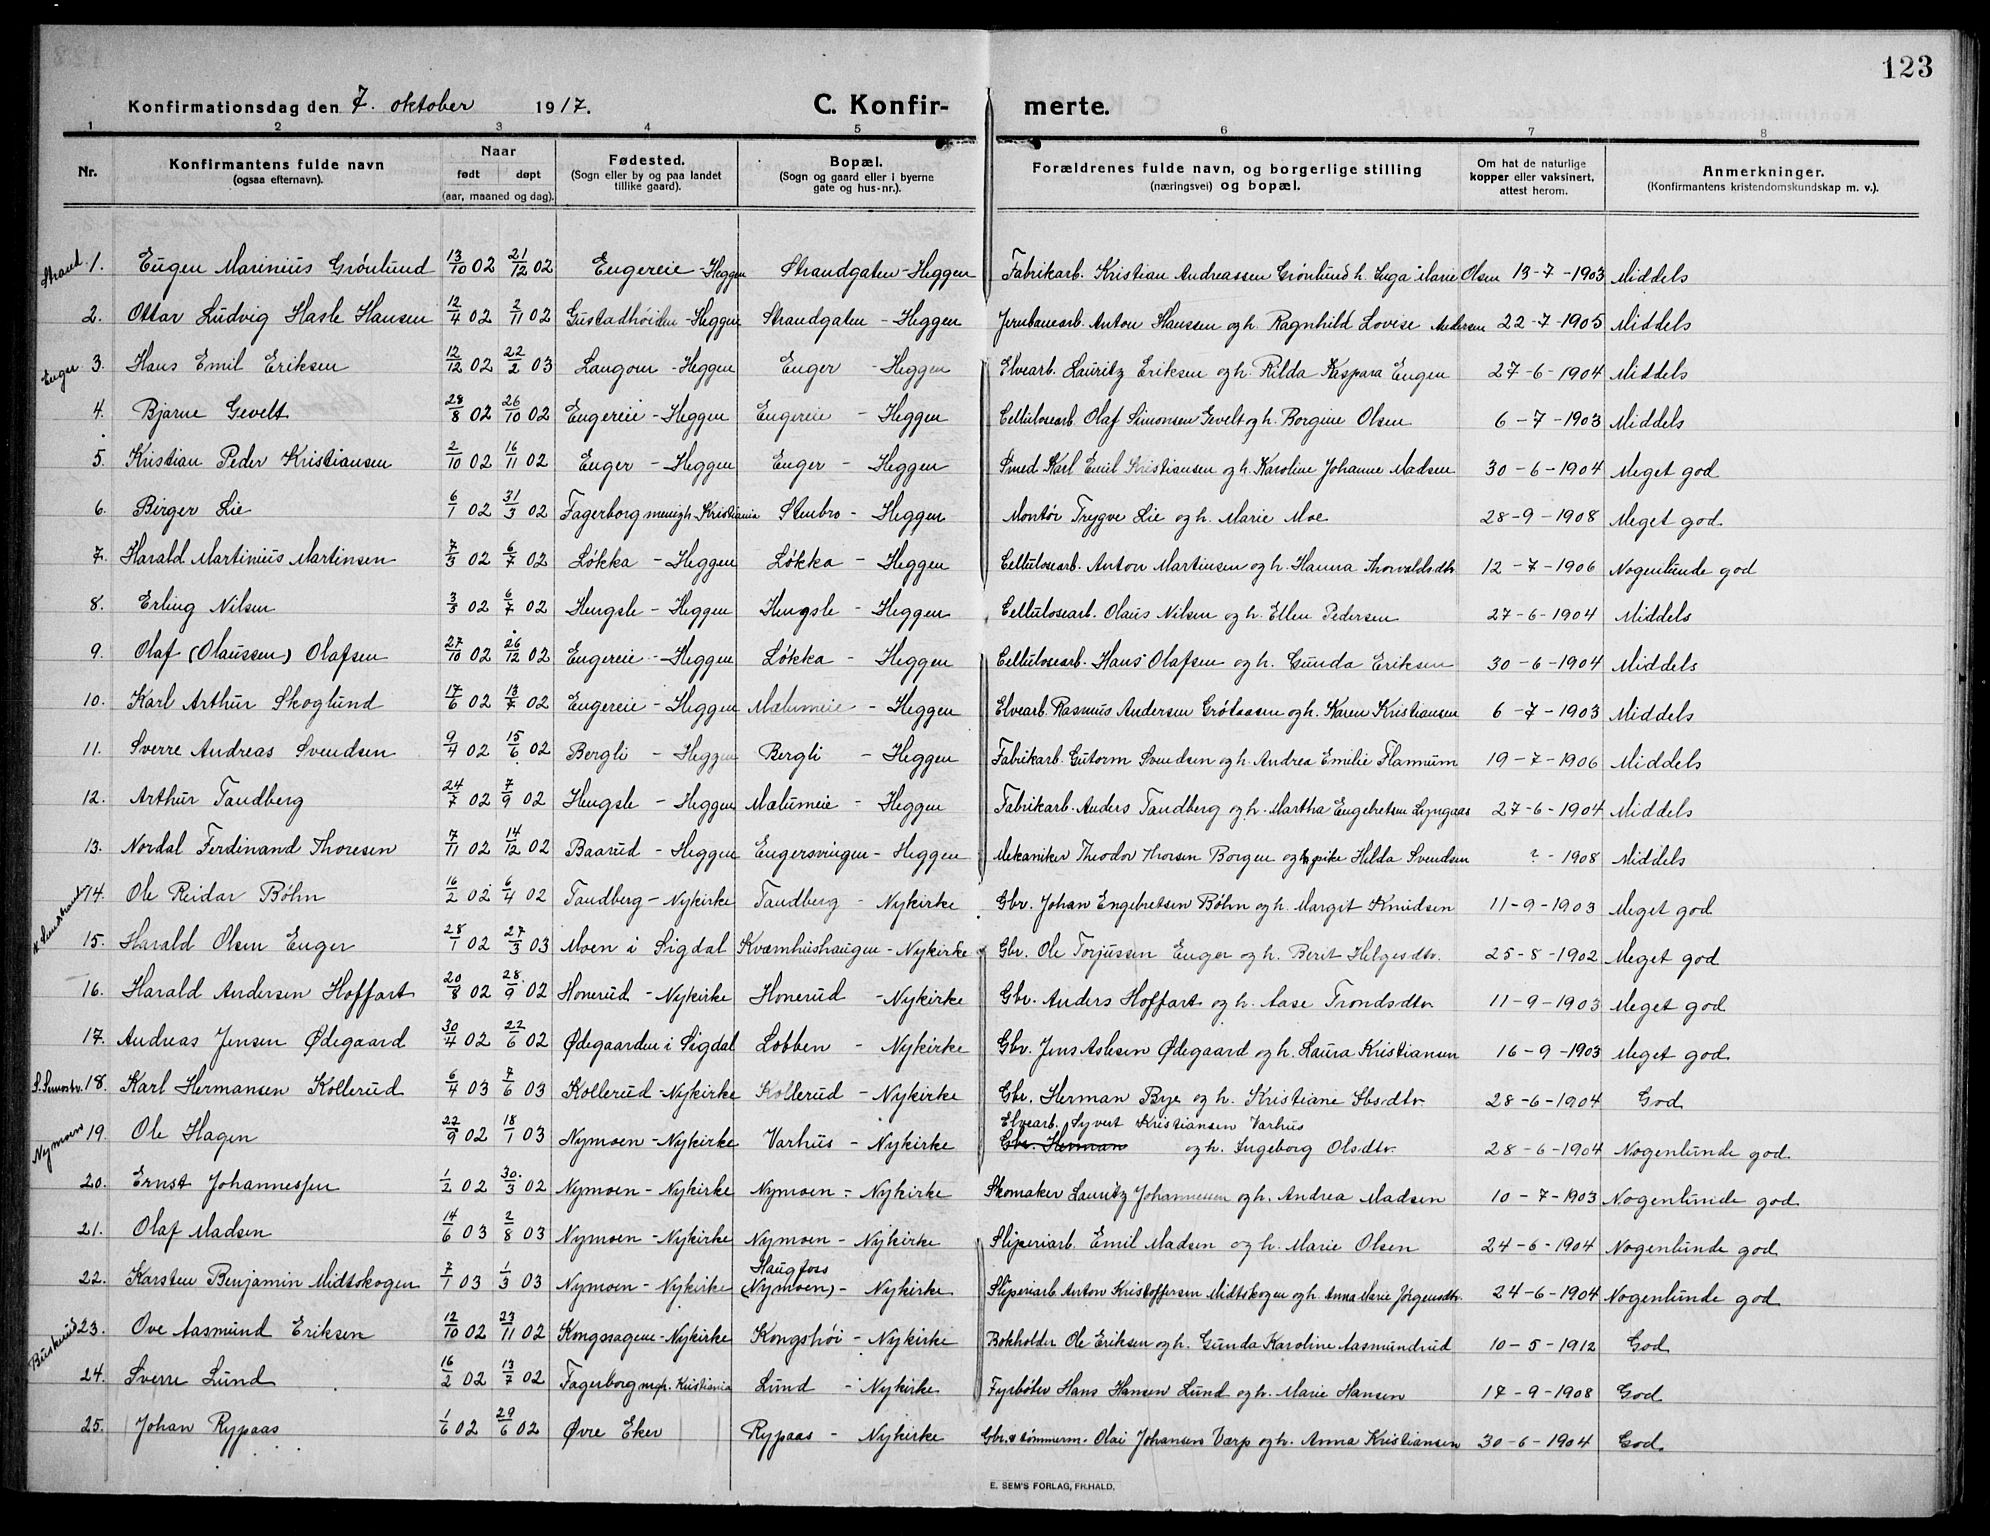 123
Konfirmationsdag den 7. oktober 1917. C. Konfir- merte.
1 2 3 4 5 6 7 8
Nr. Konfirmantens fulde navn (ogsaa efternavn). Naar født døpt (aar, maaned og dag). Fødested. (Sogn eller by og paa landet tillike gaard). Bopæl. (Sogn og gaard eller i byerne gate og hus-nr.). Forældrenes fulde navn, og borgerlige stilling (næringsvei) og bopæl. Om hat de naturlige kopper eller vaksinert, attest herom. Anmerkninger. (Konfirmantens kristendomskundskap m. v.).
Strand 1. Eugen Marinius Grönlund 13/10 02 21/12 02 Engereie - Heggen Strandgaten - Heggen Fabrikarb. Kristian Andreassen Grönlund h. Inga Marie Olsen 13-7-1903 Middels
2. Ottar Ludvig Hasle Hansen 12/4 02 2/11 02 Gustadhöiden - Heggen Strandgaten - Heggen Jernbanearb. Anton Hansen og h. Ragnhild Lovise Andersen 22-7-1905 Middels
Enger 3. Hans Emil Eriksen 12/12 02 22/2 03 Langom - Heggen Enger - Heggen Elvearb. Lauritz Eriksen og h. Hilda Kaspara Engen 27-6-1904 Middels
4. Bjarne Gevelt 28/8 02 26/10 02 Engereie - Heggen Engereie - Heggen Cellulosearb. Olaf Simonsen Gevelt og h. Borgine Olsen 6-7-1903 Middels
5. Kristian Peder Kristiansen 2/10 02 16/11 02 Enger - Heggen Enger - Heggen Smed Karl Emil Kristiansen og h. Karoline Johanne Madsen 30-6-1904 Meget god
6. Birger Lie 6/1 02 31/3 02 Fagerborg menigh. Kristiania Stenbro - Heggen Montör Trygve Lie og h. Marie Moe 28-9-1908 Meget god
7. Harald Martinius Martinsen 7/3 02 6/7 02 Lökka - Heggen Lökka - Heggen Cellulosearb. Anton Martinsen og h. Hanna Thorvaldsdtr 12-7-1906 Nogenlunde god
8. Erling Nilsen 3/3 02 6/7 02 Hengsle - Heggen Hengsle - Heggen Cellulosearb. Olaus Nilsen og h. Ellen Pedersen 27-6-1904 Middels
9. Olaf (Olaussen) Olafsen 27/10 02 26/12 02 Engereie - Heggen Lökka - Heggen Cellulosearb. Hans Olafsen og h. Gunda Eriksen 30-6-1904 Middels
10. Karl Arthur Skoglund 17/6 02 13/7 02 Engereie - Heggen Mælumeie - Heggen Elvearb. Rasmus Andersen Grötaasen og h. Karen Kristiansen 6-7-1903 Middels
11. Sverre Andreas Svendsen 9/4 02 15/6 02 Bergli - Heggen Bergli - Heggen Fabrikarb. Gutorm Svendsen og h. Andrea Emilie Flannum 19-7-1906 Middels
12. Arthur Tandberg 24/7 02 7/9 02 Hengsle - Heggen Mælumeie - Heggen Fabrikarb. Anders Tandberg og h. Martha Engebretsen Lyngaas 27-6-1904 Middels
13. Nordal Ferdinand Thoresen 7/11 02 14/12 02 Baarud - Heggen Engersvingen - Heggen Mekaniker Theodor Thorsen Borgen og pike Hilda Svendsen ? - 1908 Middels
14. Ole Reidar Böhn 16/2 02 6/4 02 Tandberg - Nykirke Tandberg - Nykirke Gbr. Johan Engebretsen Böhn og h. Margit Knudsen 11-9-1903 Meget god
15. Harald Olsen Enger 28/1 02 27/3 03 Moen i Sigdal Kværnhushaugen - Nykirke Gbr. Ole Torjussen Enger og h. Berit Helgesdtr. 25-8-1902 Meget god
16. Harald Andersen Hoffart 20/8 02 28/9 02 Honerud - Nykirke Honerud - Nykirke Gbr. Anders Hoffart og h. Aase Trondsdtr 11-9-1903 Meget god
17. Andreas Jensen Ødegaard 30/4 02 22/6 02 Ødegaarden i Sigdal Lobben - Nykirke Gbr. Jens Aslesen Ødegaard og h. Laura Kristiansen 16-9-1903 Meget god
18. Karl Hermansen Kollerud 6/4 03 7/6 03 Kollerud - Nykirke Kollerud - Nykirke Gbr. Herman Bye og h. Kristiane 28-6-1904 God
Elvearb. Syvert Kristiansen Varhus
Nymoen 19. Ole Hagen 22/9 02 18/1 03 Nymoen - Nykirke Varhus - Nykirke Gbr. Herman og h. Ingeborg Olsdtr. 28-6-1904 Nogenlunde god
20. Ernst Johannessen 1/2 02 30/3 02 Nymoen - Nykirke Nymoen - Nykirke Skomaker Lauritz Johannessen og h. Andrea Madsen 10-7-1903 Nogenlunde god
21. Olaf Madsen 14/6 03 2/8 03 Nymoen - Nykirke Nymoen - Nykirke Sliperiarb. Emil Madsen og h. Marie Olsen 24-6-1904 Nogenlunde god
Haugfoss
22. Karsten Benjamin Midtskogen 7/1 03 1/3 03 Nymoen - Nykirke (Nymoen) - Nykirke Sliperiarb. Anton Kristoffersen Midtskogen og h. Anna Marie Jörgensdtr. 24-6-1904 Nogenlunde god
Buskerud 23. Ove Aasmund Eriksen 12/10 02 23/11 02 Kongssagene - Nykirke Kongshöi - Nykirke Bokholder Ole Eriksen og h. Gunda Karoline Aasmundrud 10-5-1912 God
24. Sverre Lund 16/2 02 13/7 02 Fagerborg mgh. Kristiania Lund - Nykirke Fyrböter Hans Hansen Lund og h. Marie Hansen 17-9-1908 God
25. Johan Rypaas 1/6 02 29/6 02 Øvre Eker Rypaas - Nykirke Gbr. & tömmerm. Olai Johansen Værp og h. Anna Kristiansen 30-6-1904 God.
E. SEM'S FORLAG, FR.HALD.